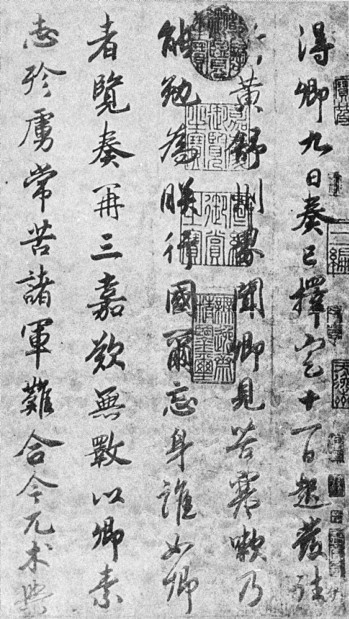 得卿九日奏已擇定十一日起發往
黃舒州界聞卿見苦寒嗽乃
能勉為朕行國爾忘身誰如卿
者覽奏再三嘉歎無斁以卿素
志殄虜常苦諸軍難合今兀朮與
寶笈
三編